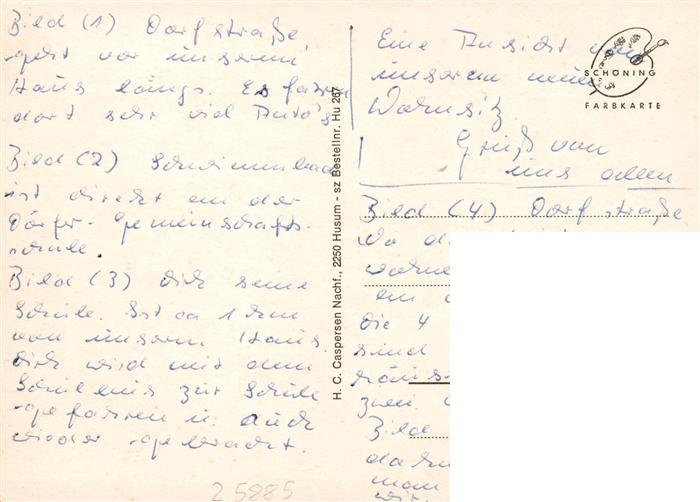 Bild (1) Dorfstraße
geht vor unserm
Haus längs. Es fahren
dort sehr viel Auto's
Bild (2) Schwimmbad
ist direkt an der
Dörfer-Gemeinschafts-
schule.
Bild (3) Dirk seine
Schule. Ist ca 1 km
von unserm Haus
Dirk wird mit dem
Schulbus zur Schule
gefahren u. auch
wieder gebracht.
25885
H. C. Caspersen Nachf., 2250 Husum - sz Bestellnr. Hu 267
Eine Ansicht von
unserem neuen
Wohnsitz.
Gruß von
uns allen
SCHÖNING
FARBKARTE
Bild (4) Dorfstraße
wo
die 4
sind
zwei
Bild
man
wir